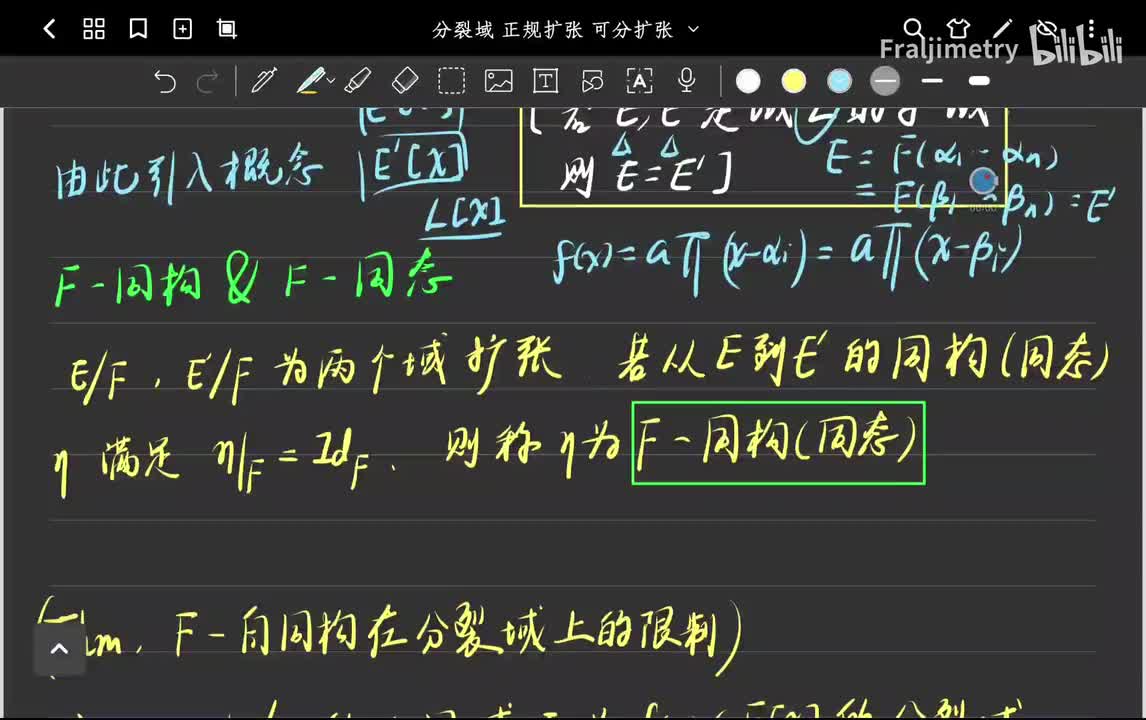 分裂域 正规扩张 可分扩张
Fraljimetry bilibili
则 E = E' ]
由此引入概念
E'[x]
L[x]
E = F(α₁ … αₙ)
= F(β₁ … βₙ) = E'
f(x) = a∏(x-αᵢ) = a∏(x-βᵢ)
F-同构 & F-同态
E/F, E'/F 为两个域扩张 若从E到E'的同构(同态)
η 满足 η|_F = Id_F. 则称 η为 F-同构(同态)
F-自同构在分裂域上的限制)